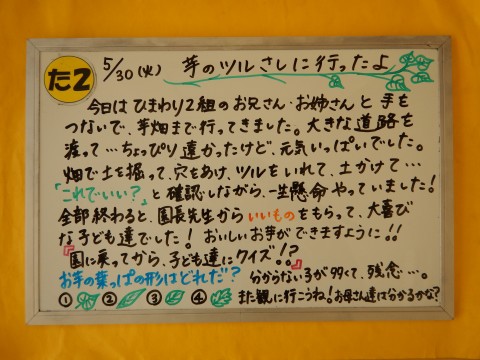 た2
5/30(火) 芋のツルさしに行ったよ
今日はひまわり2組のお兄さん・お姉さんと手を
つないで、芋畑まで行ってきました。大きな道路を
渡って…ちょっぴり遠かったけど、元気いっぱいでした。
畑で土を掘って、穴をあけ、ツルをいれて、土かけて…
「これでいい?」と確認しながら、一生懸命やっていました!
全部終わると、園長先生からいいものをもらって、大喜び
な子ども達でした! おいしいお芋ができますように!!
『園に戻ってから、子ども達にクイズ!?』
お芋の葉っぱの形はどれだ? 分からない子が多くて、残念…。
① ② ③ ④ また観に行こうね!お母さん達は分かるかな?